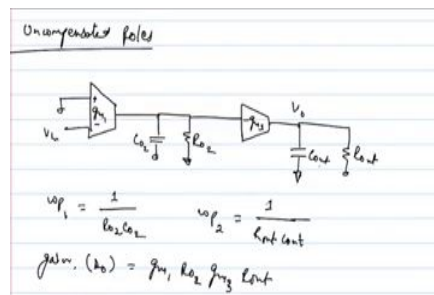 Uncompensated Poles
+
gm1
-
Vin
Co2
Ro2
-gm3
Vo
Cout
Rout
ωp1 = 1 / Ro2 Co2
ωp2 = 1 / Rout Cout
gain, (A0) = gm1 Ro2 gm3 Rout